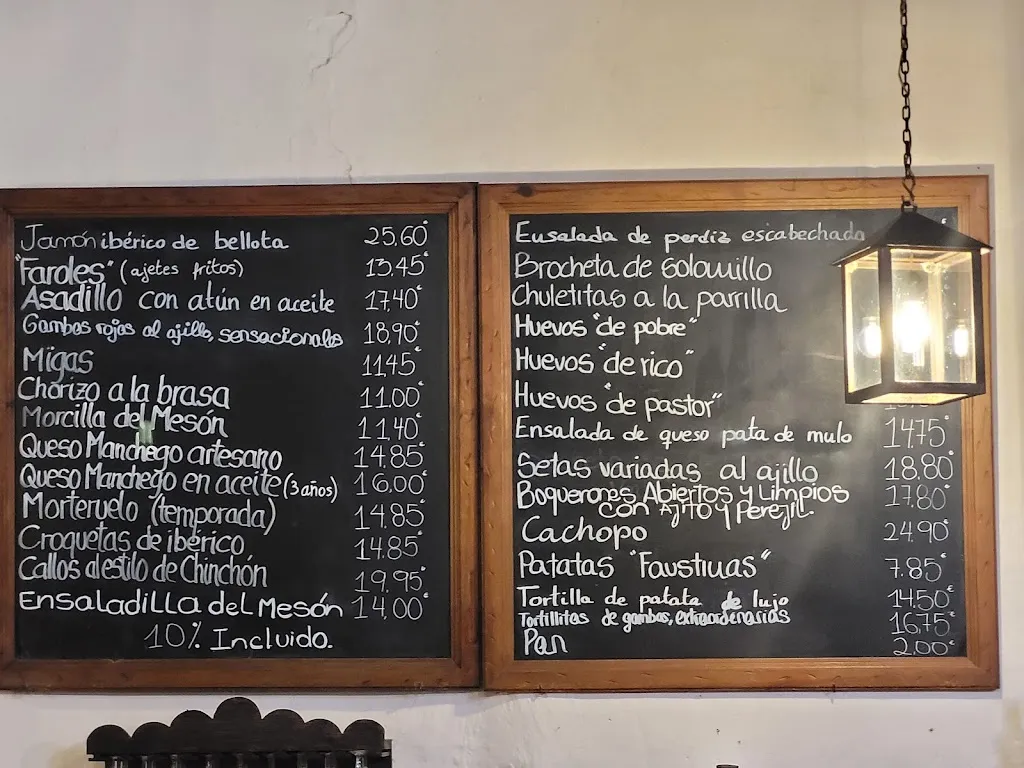 Jamón ibérico de bellota 25,60€
"Faroles" (ajetes fritos) 13.45€
Asadillo con atún en aceite 17,40€
Gambas rojas al ajillo, sensacionales 18,90€
Migas 11.45€
Chorizo a la brasa 11.00€
Morcilla del Mesón 11.40€
Queso Manchego artesano 14.85€
Queso Manchego en aceite (3 años) 16.00€
Morteruelo (temporada) 14.85€
Croquetas de ibérico 14.85€
Callos al estilo de Chinchón 19,95€
Ensaladilla del Mesón 14,00€
10% Incluido.
Ensalada de perdiz escabechada
Brocheta de solomillo
Chuletitas a la parrilla
Huevos "de pobre"
Huevos "de rico"
Huevos "de pastor"
Ensalada de queso pata de mulo 14.75€
Setas variadas al ajillo 18.80€
Boquerones Abiertos y Limpios 17.80€
con Ajito y Perejil.
Cachopo 24.90€
Patatas "Faustinas" 7.85€
Tortilla de patata de lujo 14.50€
Tortillitas de gambas, extraordenarias 16.75€
Pan 2.00€